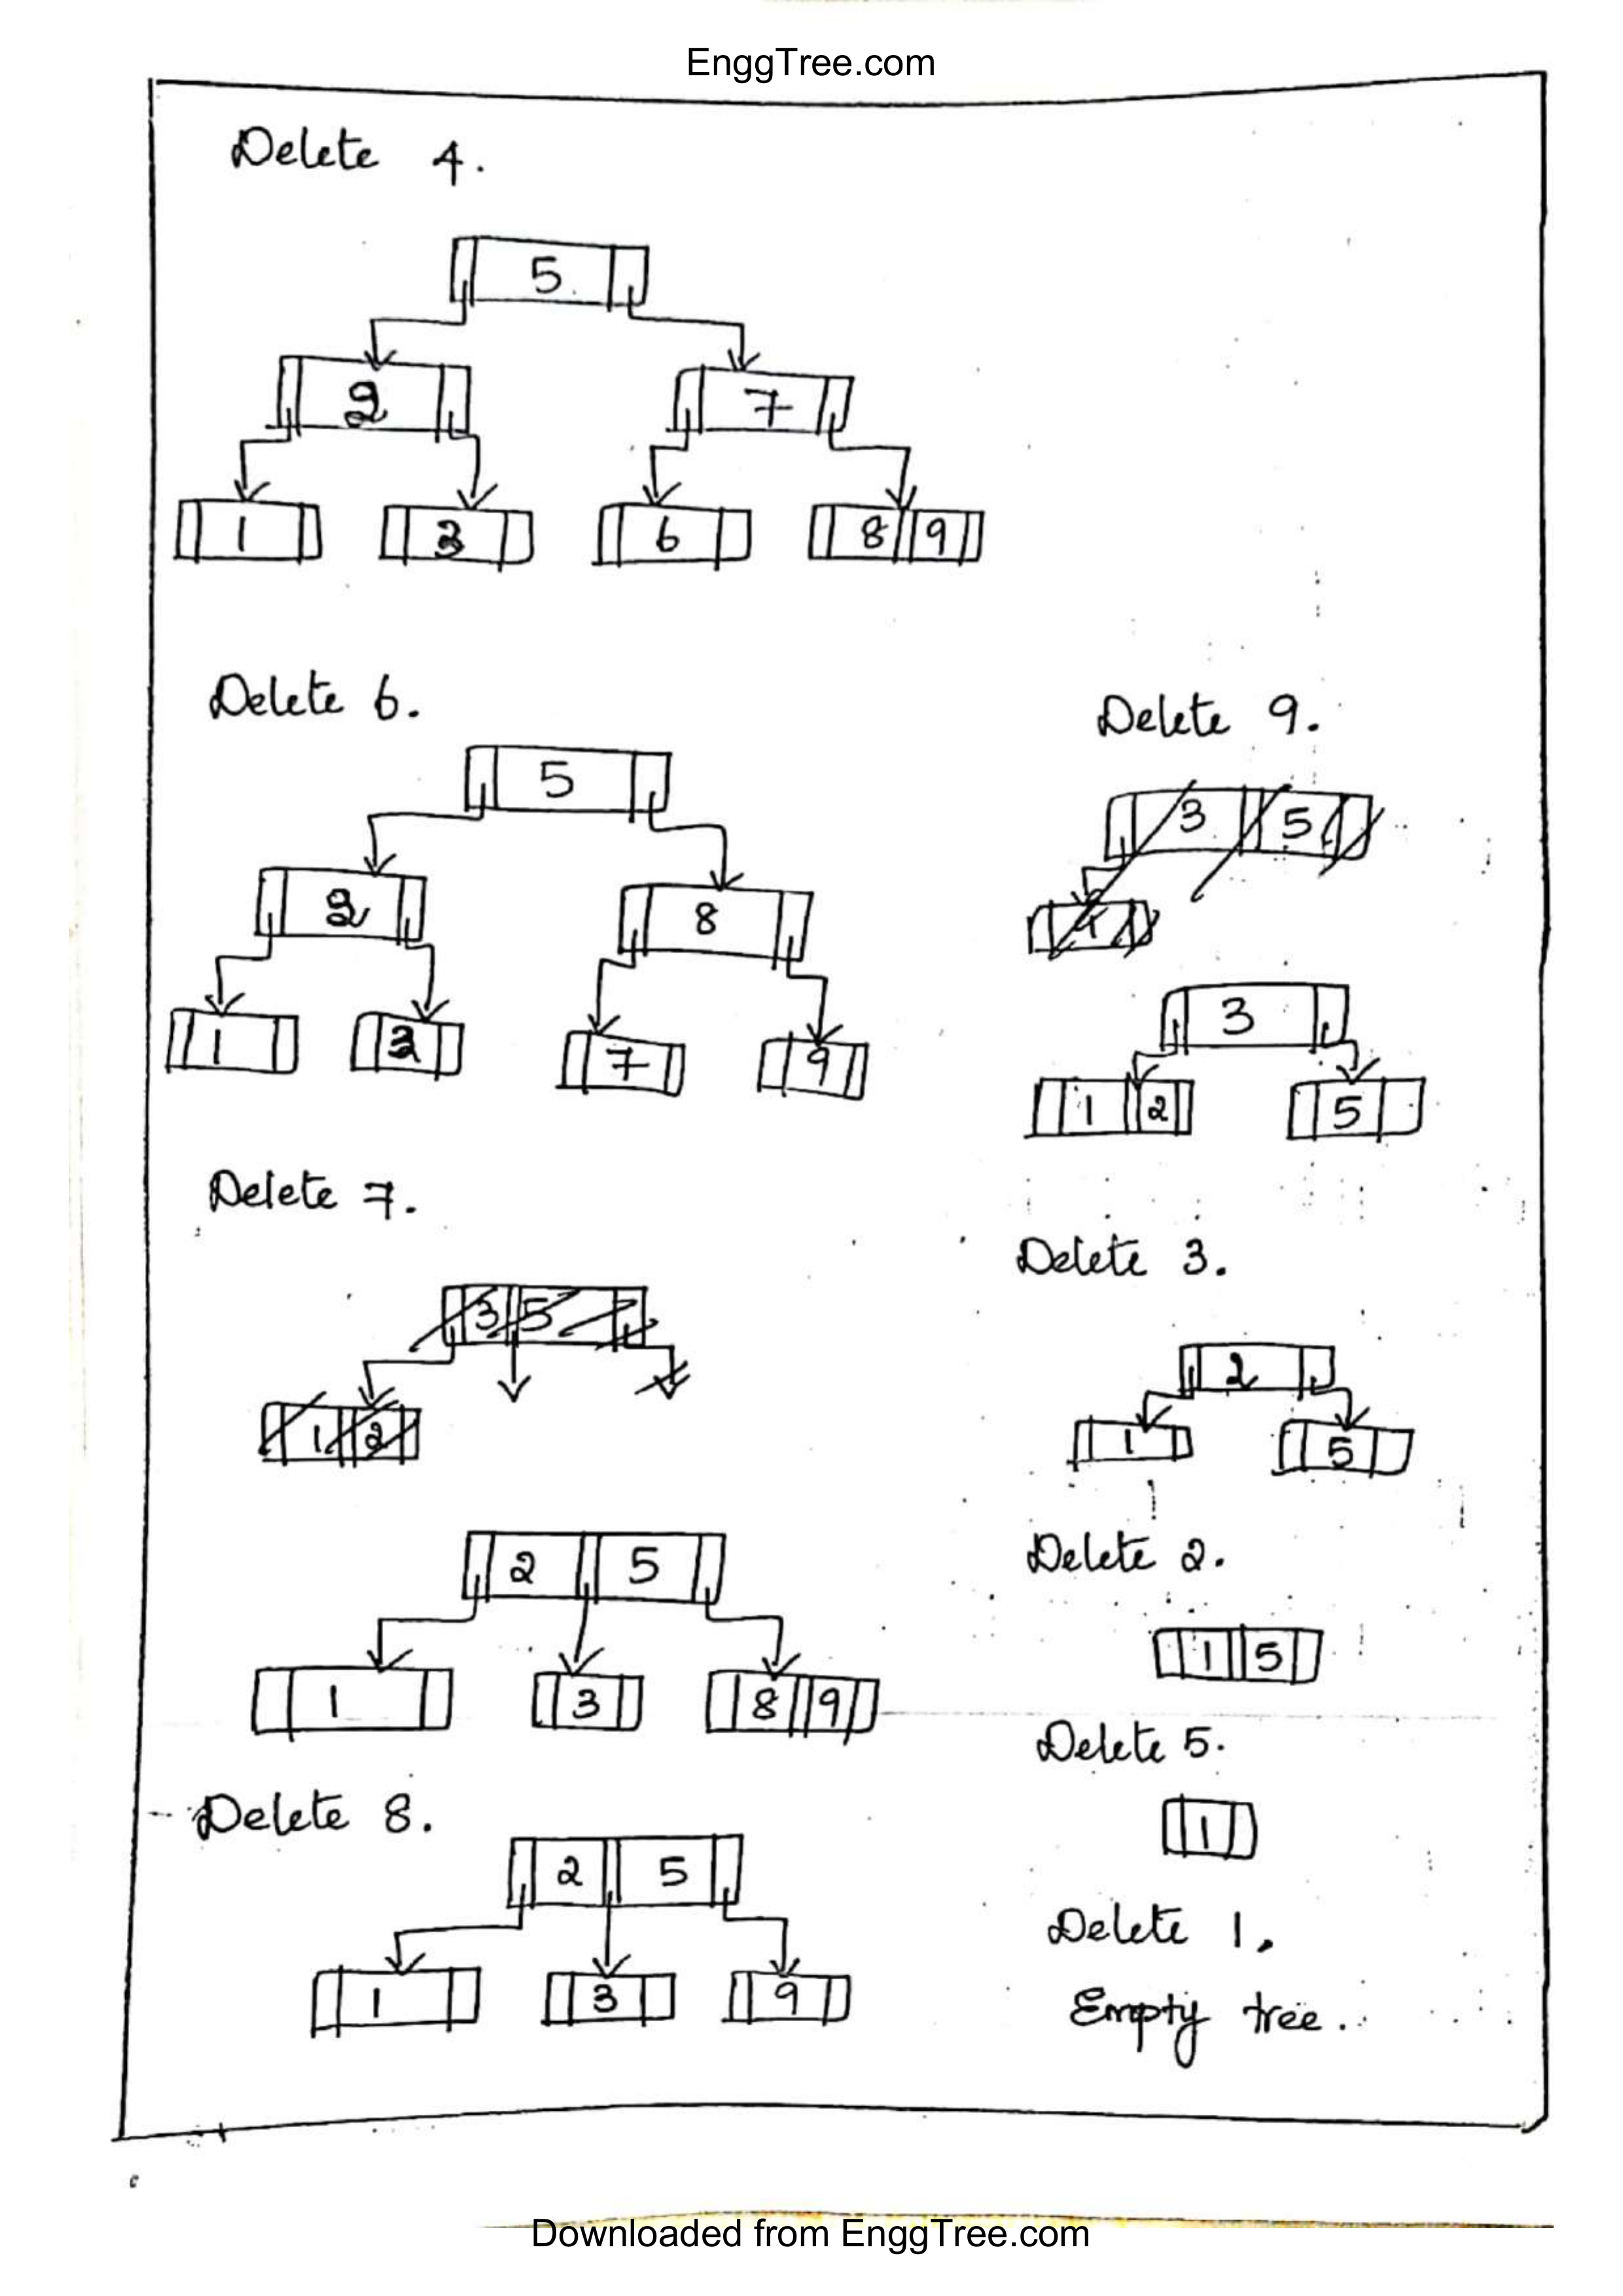 EnggTree.com
Delete 4.
5
2 7
1 3 6 8 9
Delete 6.
5
2 8
1 3 7 9
Delete 7.
3 5
1 2
2 5
1 3 8 9
Delete 8.
2 5
1 3 9
Delete 9.
3 5
3
1 2 5
Delete 3.
2
1 5
Delete 2.
1 5
Delete 5.
1
Delete 1.
Empty tree.
Downloaded from EnggTree.com